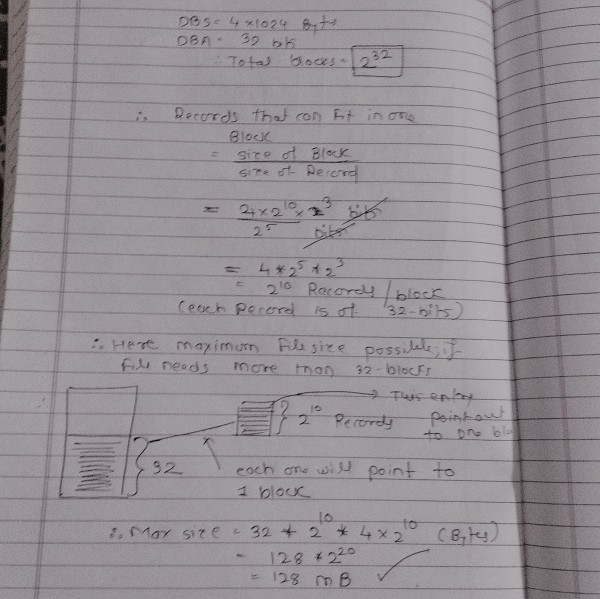 DBS = 4 × 1024 Bytes
DBA = 32 bit
∴ Total blocks = 2^32
∴ Records that can fit in one
Block
= size of Block
size of Record
= 4 × 2^10 × 2^3 bits
2^5 bits
= 4 * 2^5 * 2^3
= 2^10 Records / block
(each Record is of 32-bits)
∴ Here maximum file size possible, if
file needs more than 32-blocks
→ This entry
} 2^10 Records point out
to one blo
} 32
each one will point to
1 block
∴ Max size = 32 * 2^10 * 4 × 2^10 (Bytes)
= 128 * 2^20
= 128 MB ✓